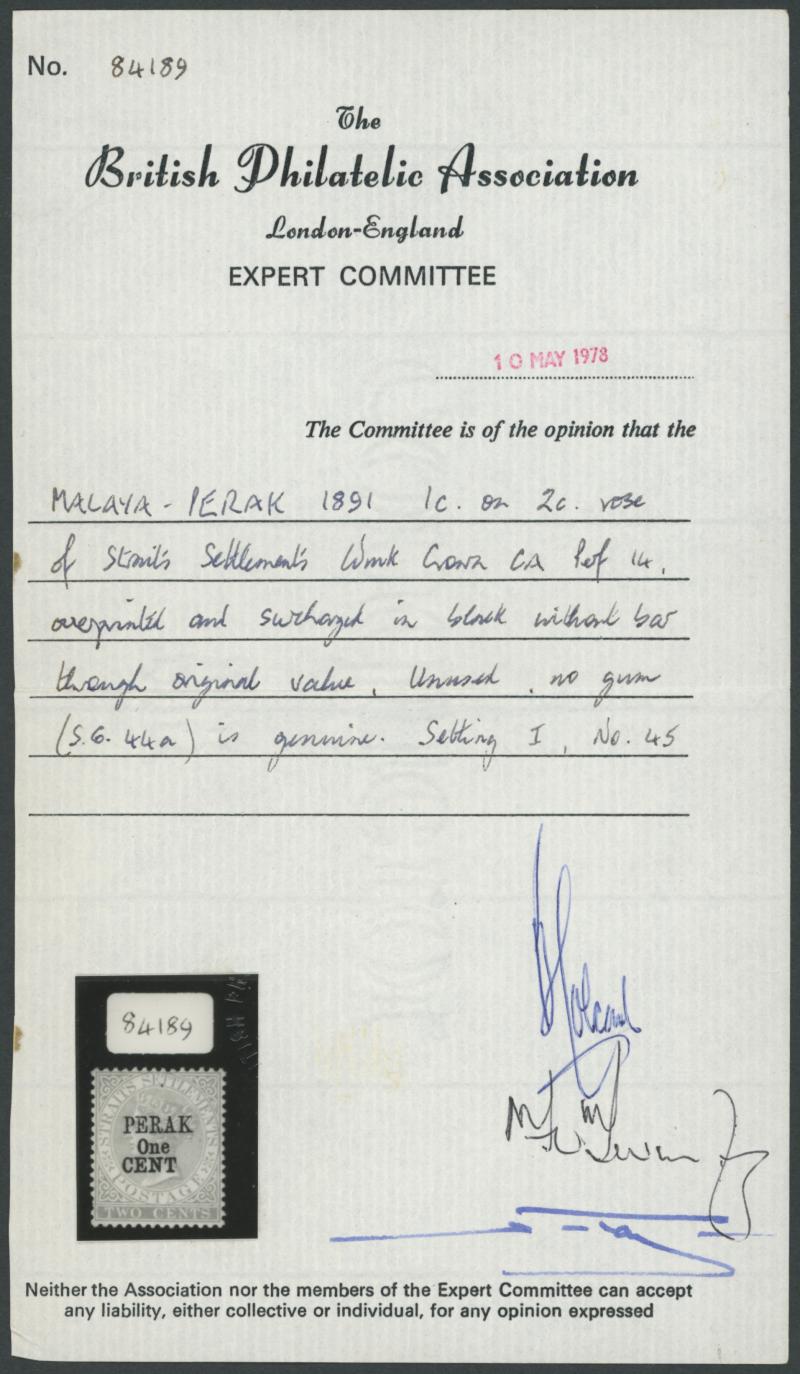 No. 84189
The
British Philatelic Association
London-England
EXPERT COMMITTEE
10 MAY 1978
The Committee is of the opinion that the
MALAYA - PERAK 1891 1c. on 2c. rose
of Straits Settlements Wmk Crown CA Perf 14,
overprinted and surcharged in black without bar
through original value, Unused, no gum
(S.G. 44a) is genuine. Setting I, No. 45
84189
STRAITS SETTLEMENTS
PERAK
One
CENT
POSTAGE
TWO CENTS
Neither the Association nor the members of the Expert Committee can accept
any liability, either collective or individual, for any opinion expressed